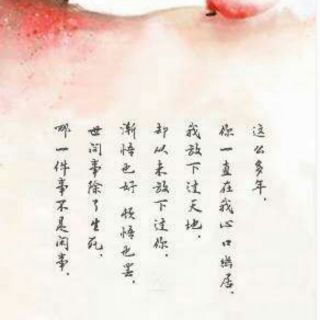 这么多年，
你一直在我心口幽居，
我放下过天地，
却从未放下过你，
渐悟也好 顿悟也罢，
世间事除了生死，
哪一件事不是闲事，